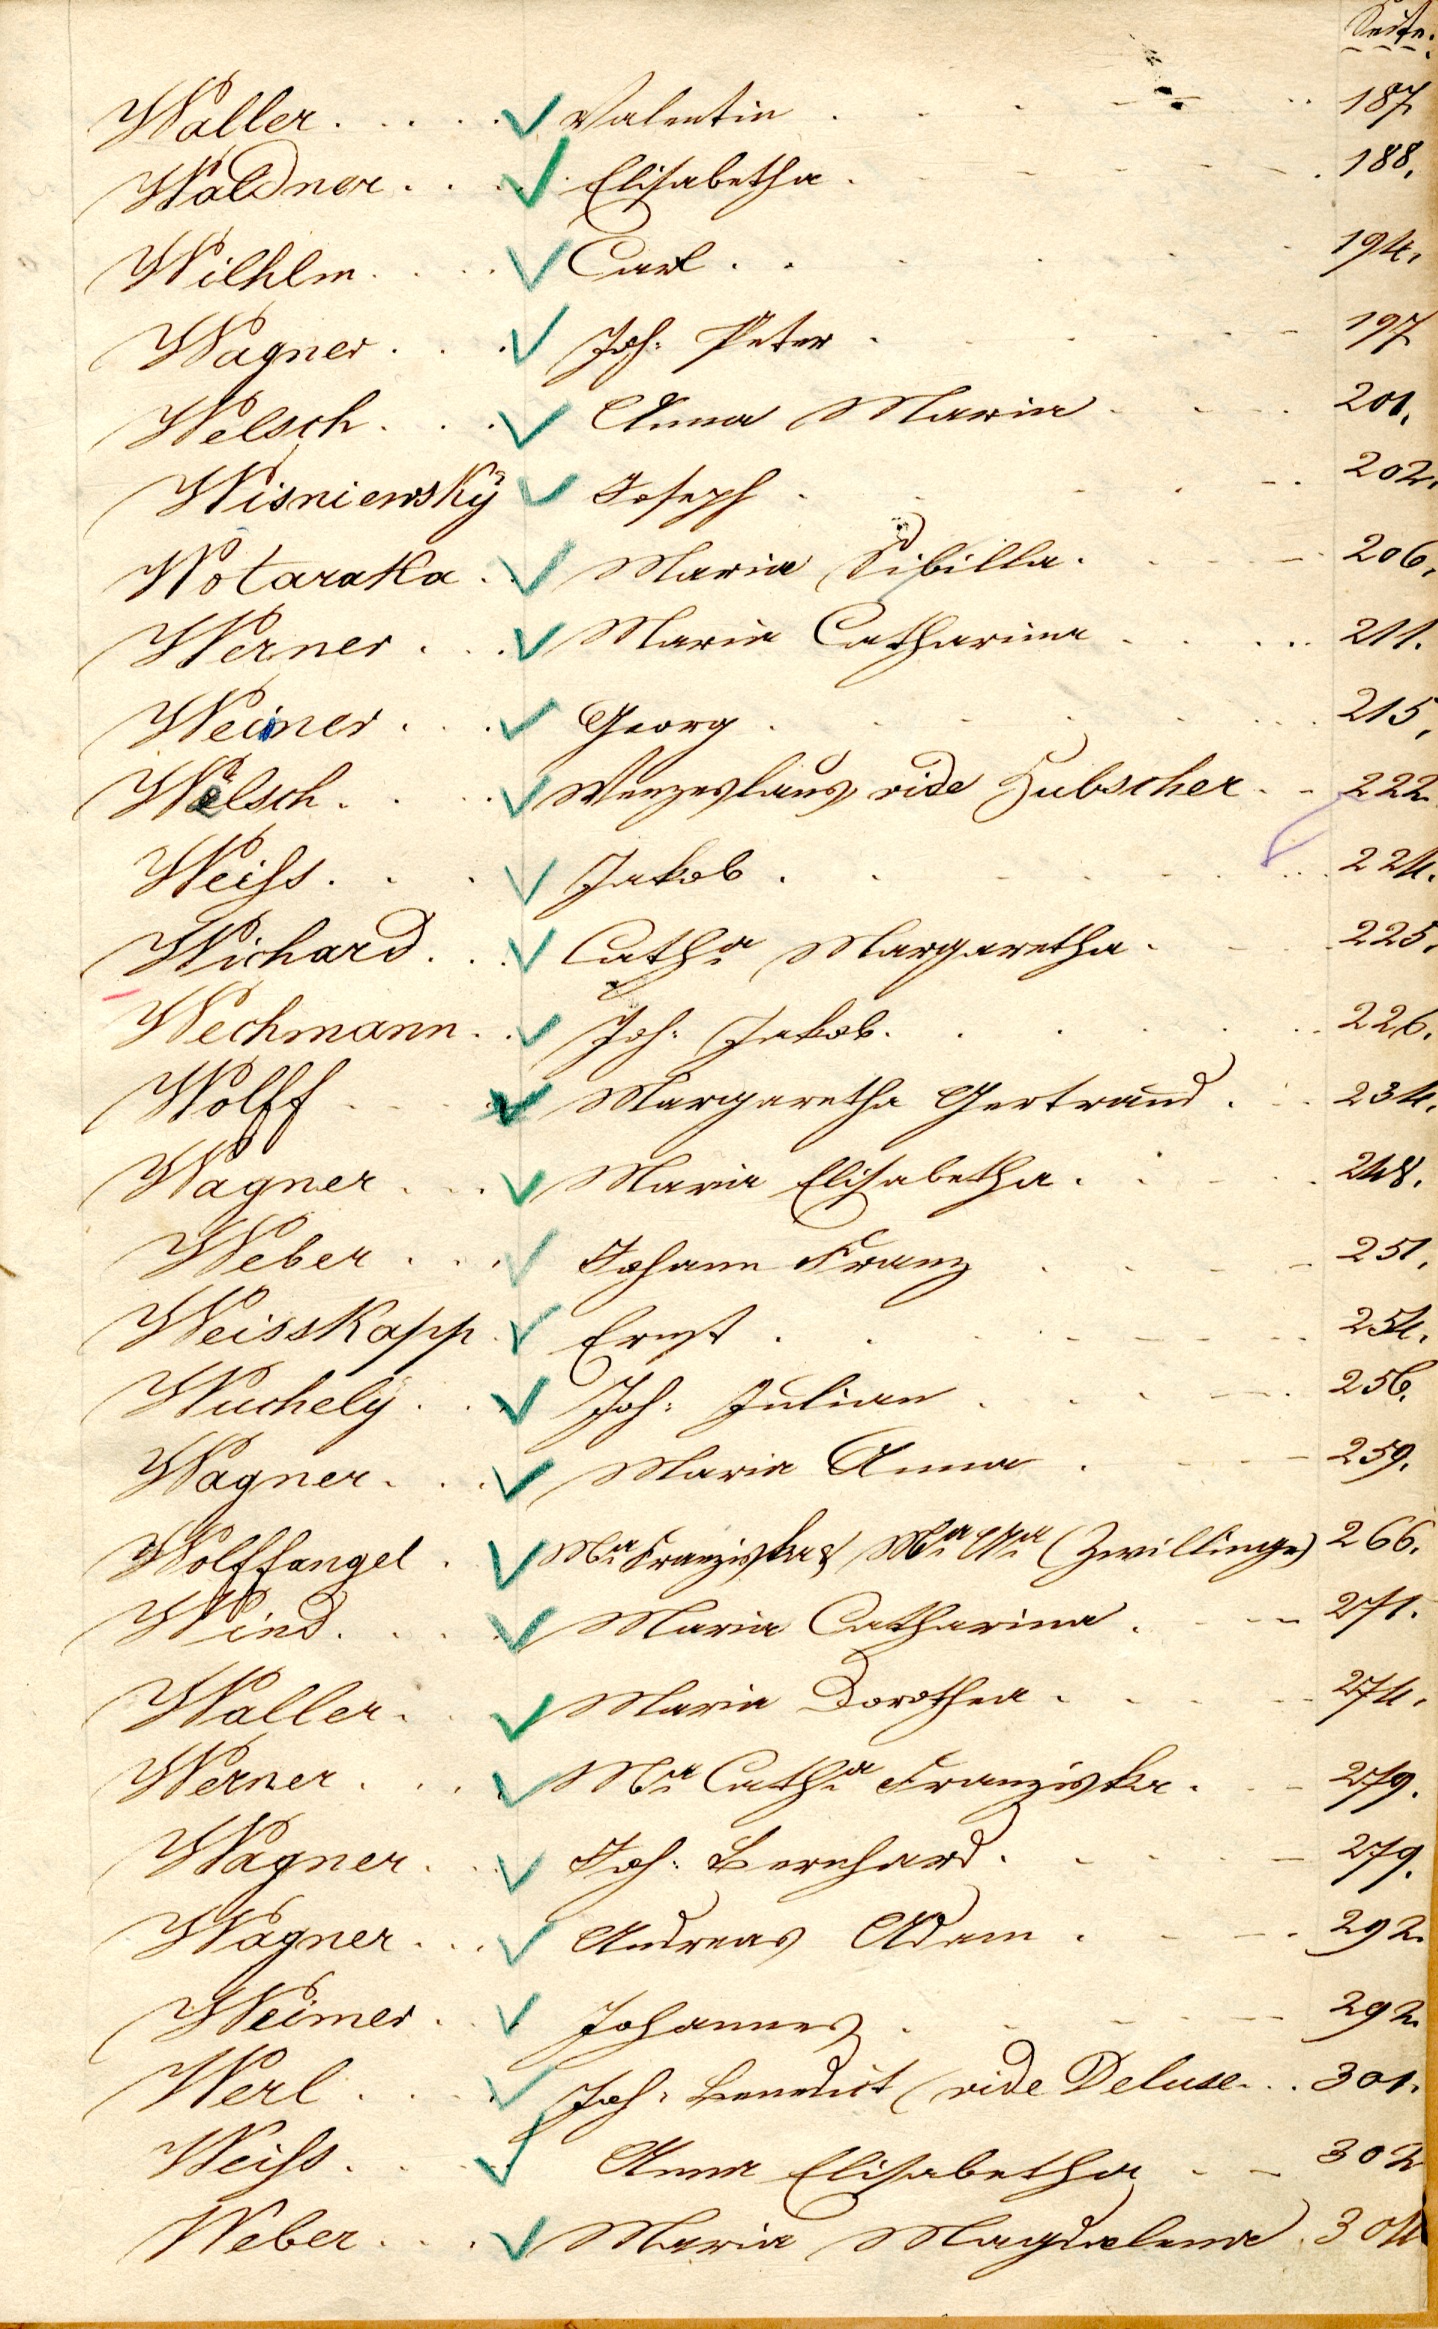 Seite.
Waller . . . . . Valentin . . . . . 187
Waldner . . . . Elisabetha . . . . . 188.
Wilhlm . . . . Carl . . . . . 194.
Wagner . . . Joh: Peter . . . . . 197
Welsch . . . Anna Maria . . . . 201.
Wisniewsky Joseph . . . . . 202.
Wotaraka . . Maria Sibilla . . . . 206.
Werner . . . Maria Catharina . . . . 211.
Weiner . . . Georg . . . . . 215.
Welsch . . . Wenzeslaus vide Hubscher . . 222.
Weiss . . . Jakob . . . . . 224.
Wichard . . . Cath:a Margaretha . . . . 225.
Wechmann . . Joh: Jakob . . . . . 226.
Wolff . . . Margaretha Gertraud . . . 234.
Wagner . . . Maria Elisabetha . . . . 248.
Weber . . . Johann Franz . . . . 251.
Weisskapp . Ernst . . . . . 254.
Wuchely . . . Joh: Julian . . . . . 256.
Wagner . . . Maria Anna . . . . 259.
Wolffangel . Ma Franziska & Ma Aa (Zwillinge) 266.
Wind . . . Maria Catharina . . . . 271.
Waller . . . Maria Dorothea . . . . 274.
Werner . . . Ma Cath:a Franziska . . . 279.
Wagner . . . Joh: Bernhard . . . . . 279.
Wagner . . . Andreas Adam . . . . 292.
Weimer . . . Johannes . . . . . 292.
Werl . . . Joh: Benedict (vide Deluse . . 301.
Weiss . . . Anna Elisabetha . . 302
Weber . . . Maria Magdalena . 304